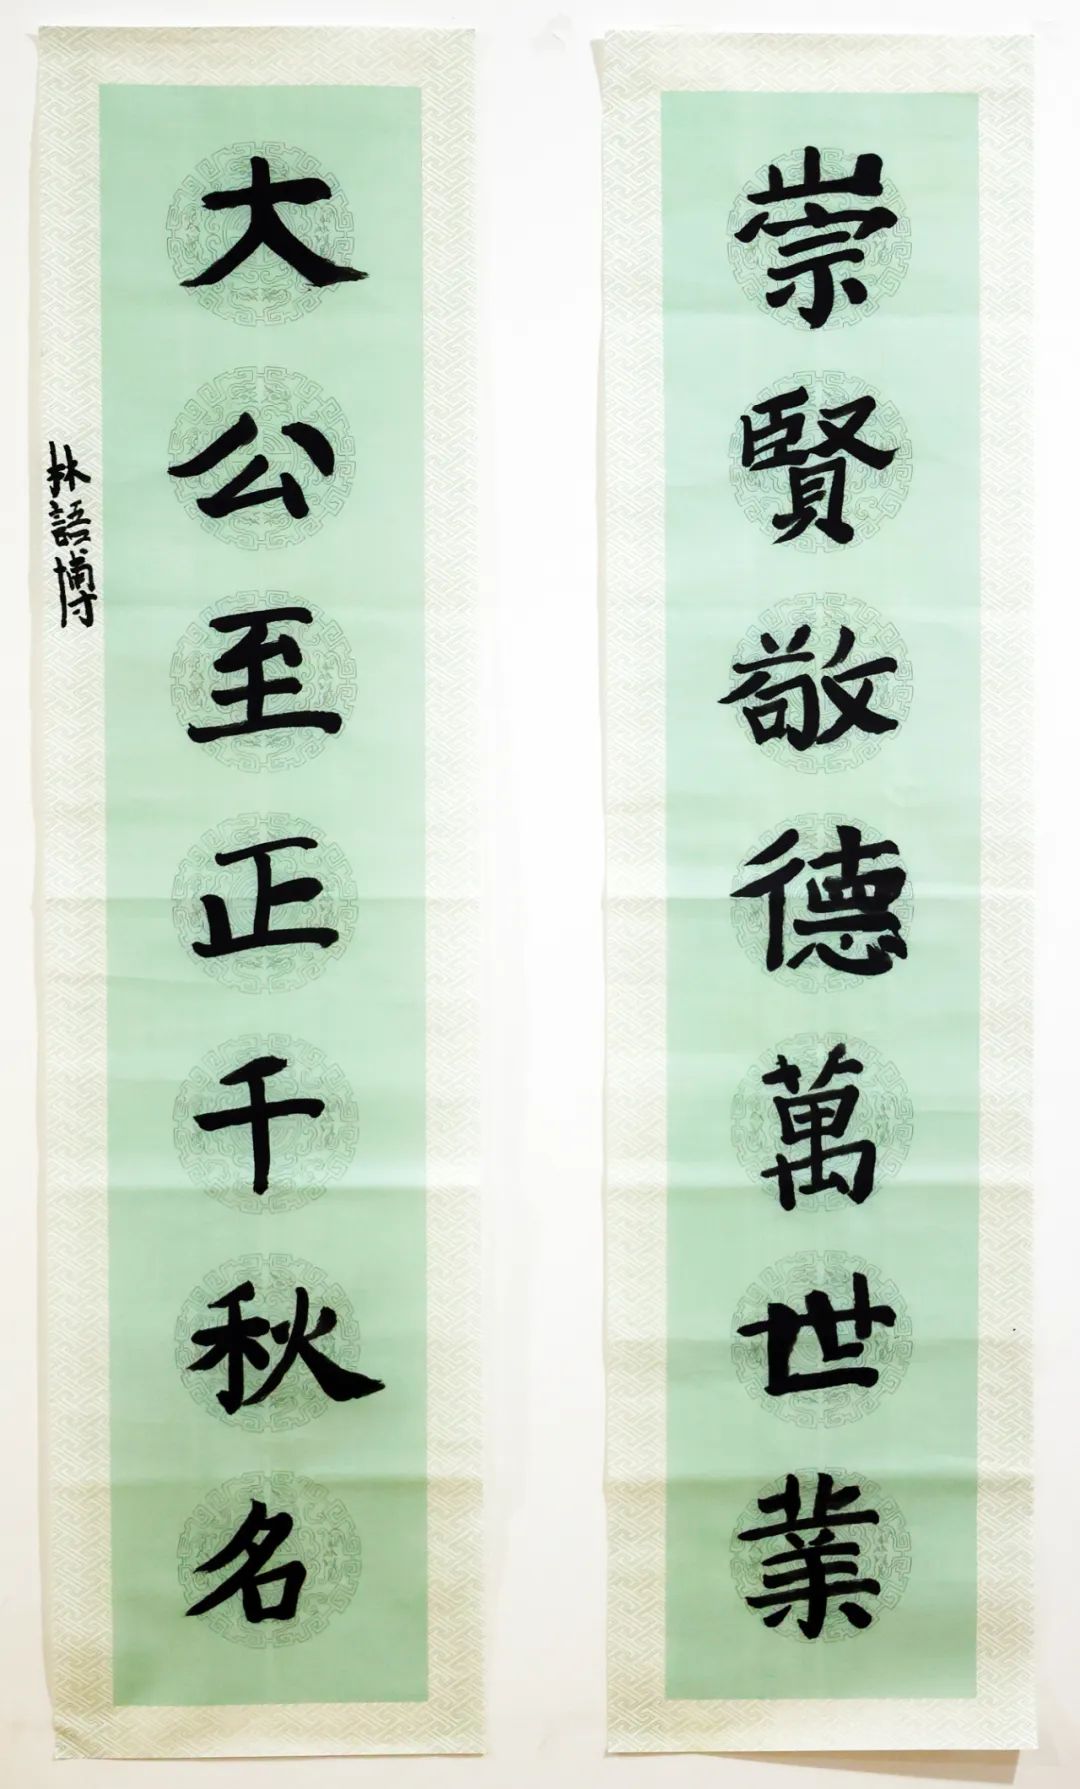 崇賢敬德萬世業
大公至正千秋名
林語博